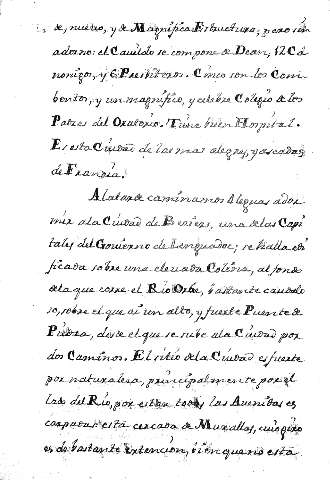 de, nuevo, y de Magnifica Estructura, pero sin
adorno: el Cavildo se compone de Dean, 12 Ca
nonigos, y 6 Presbiteros. Cinco son los Com
bentos, y un magnifico, y celebre Colegio de los
Patres del Oratorio. Tiene buen Hospital.
Es esta Ciudad de las mas alegres, y aseadas
de Francia.
A la tarde caminamos leguas a dor
mir a la Ciudad de Beziers, una de las Capi
tales del Govierno de Lenguadoc; se halla edi
ficada sobre una elevada Colina, al fondo
de la que corre el Rio Orbe, bastante caudalo
so, sobre el que ai un alto, y fuerte Puente de
Piedra, desde el que se sube a la Ciudad por
dos Caminos. El sitio de la Ciudad es fuerte
por naturaleza, principalmente por el
lado del Rio, por estar todas las Avenidas es
carpadas está cercada de Murallas, cuio giro
es de bastante extención, bien que no está